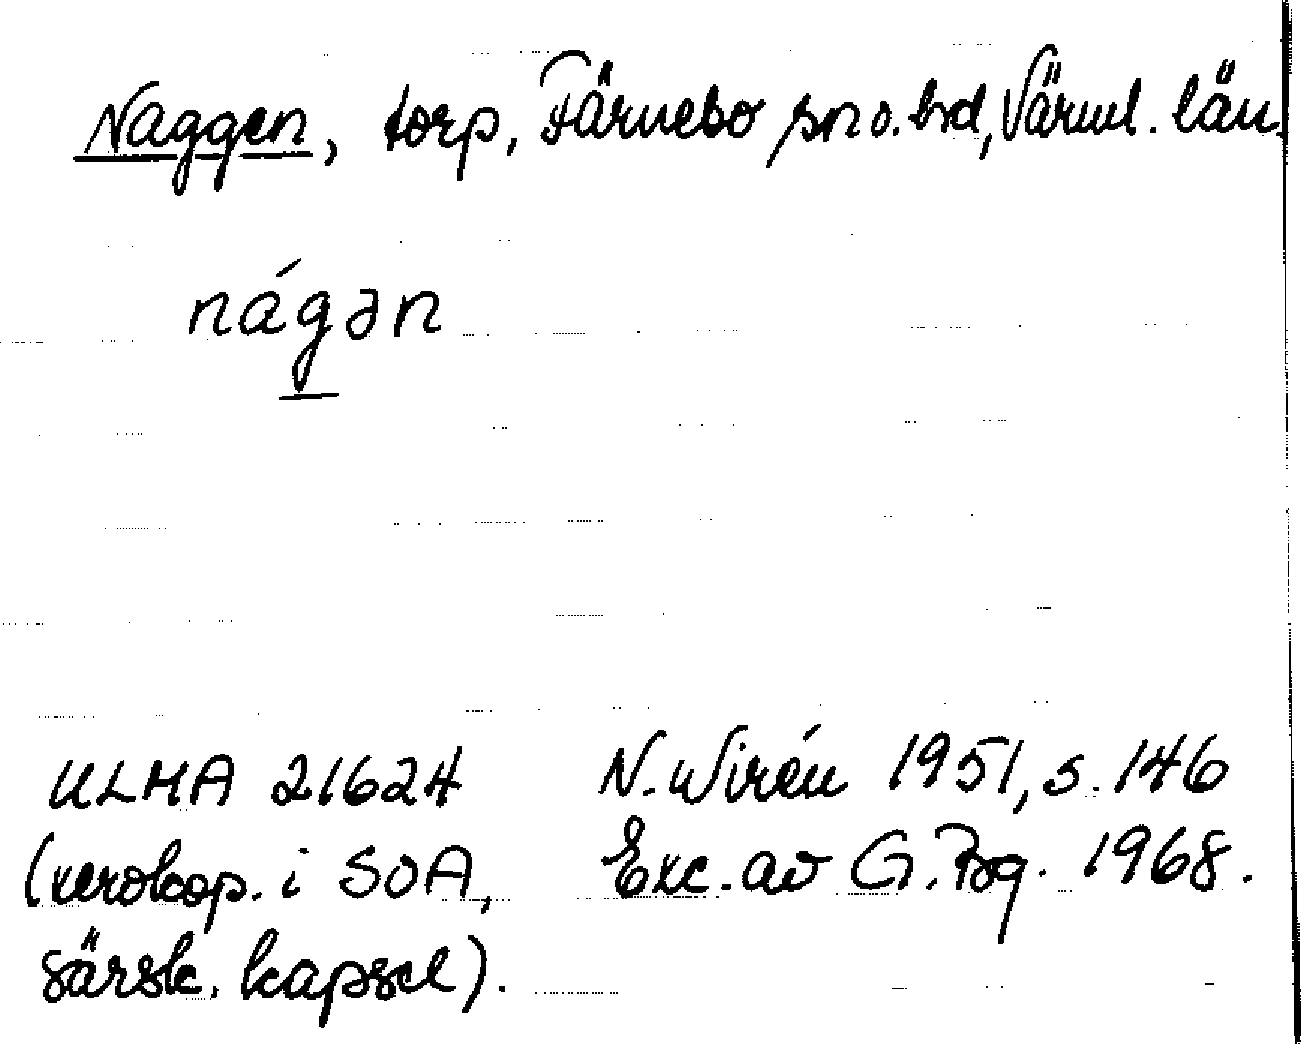 Naggen, torp, Färnebo sn o. hd, Värml. län.
nágən
ULMA 21624 N. Wirén 1951, s. 146
(xerokop. i SOA, Exc. av G. Bg. 1968.
särsk. kapsel).